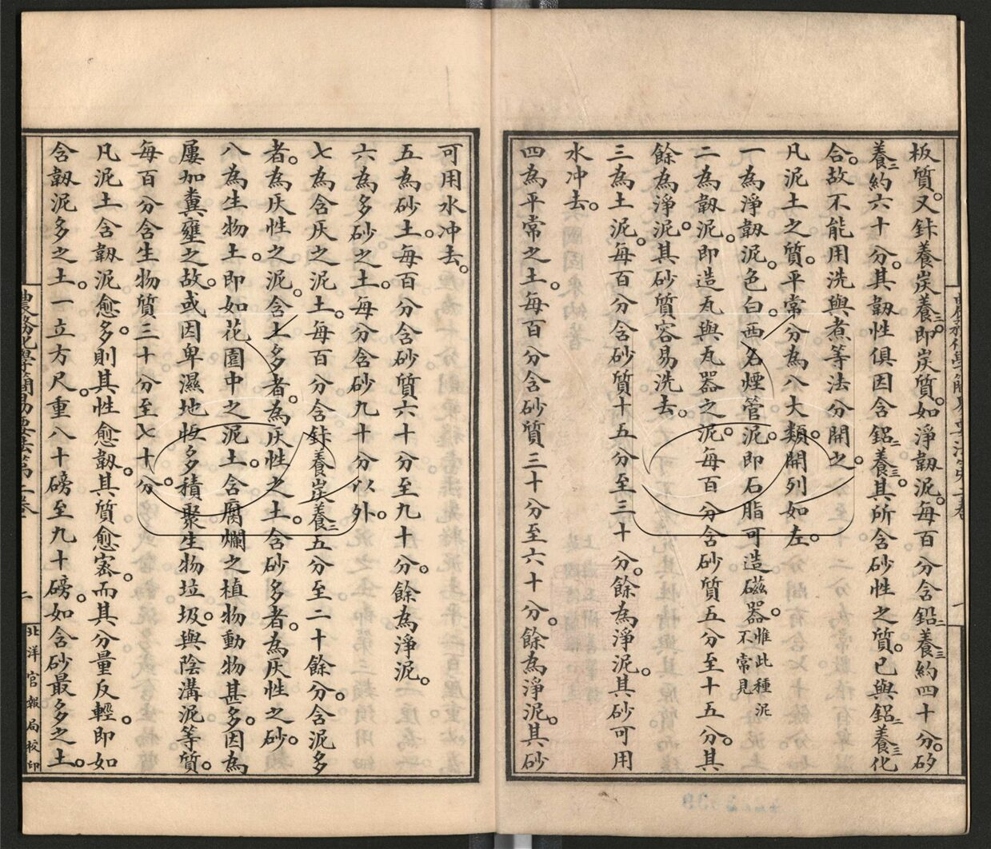 板質。又鉢養炭養三。即炭質。如淨韌泥。每百分含鋁二養三約四十分。矽
養三約六十分。其韌性俱因含鋁二養三。其所含砂性之質。已與鋁二養三化
合。故不能用洗與煮等法分開之。
凡泥土之質。平常分為八大類。開列如左。
一為淨韌泥。色白。西名煙管泥。即石脂。可造磁器。惟此種泥不常見
二為韌泥。即造瓦與瓦器之泥。每百分含砂質五分至十五分。其
餘為淨泥。其砂質容易洗去。
三為土泥。每百分含砂質十五分至三十分。餘為淨泥。其砂可用
水冲去。
四為平常之土。每百分含砂質三十分至六十分。餘為淨泥。其砂
可用水冲去。
五為砂土。每百分含砂質六十分至九十分。餘為淨泥。
六為多砂之土。每分含砂九十分以外。
七為含灰之泥土。每百分含鉢養炭養三五分至二十餘分。含泥多
者。為灰性之泥。含土多者。為灰性之土。含砂多者。為灰性之砂。
八為生物土。即如花園中之泥土。含腐爛之植物動物甚多。因為
屢加糞壅之故。或因卑濕地恆多積聚生物垃圾與陰溝泥等質。
每百分含生物質三十分至七十分。
凡泥土含韌泥愈多。則其性愈韌。其質愈密。而其分量反輕。即如
含韌泥多之土。一立方尺。重八十磅至九十磅。如含砂最多之土。
農務化學簡易要法第一卷
二
北洋官報局校印